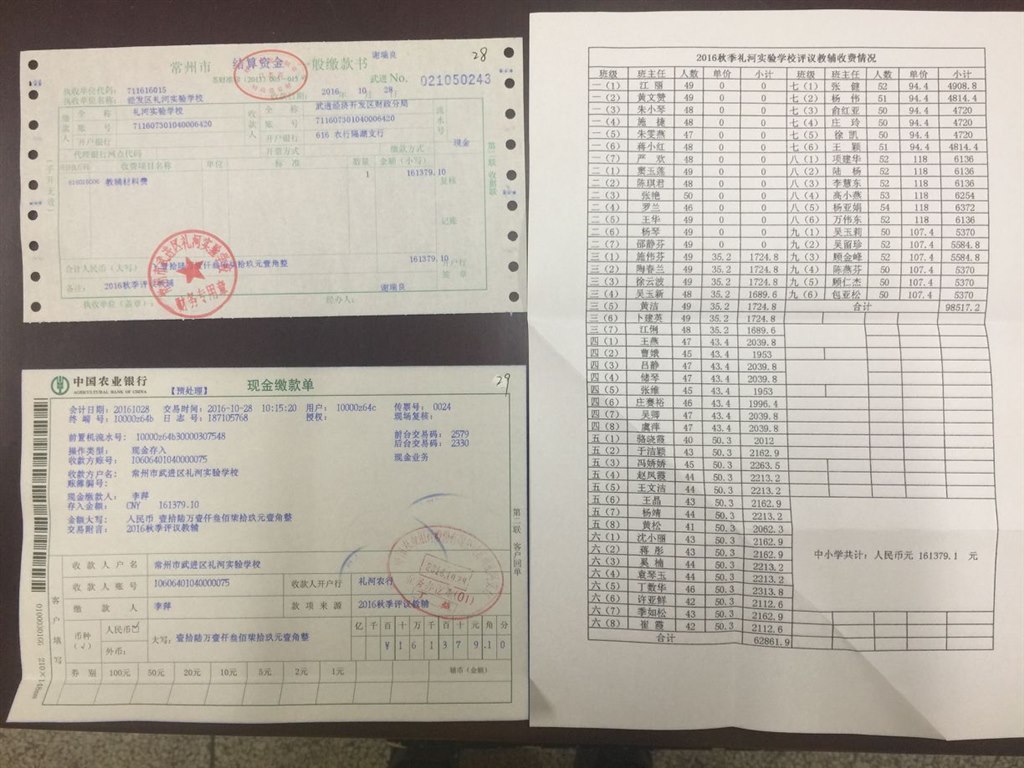 28
谢瑞良
常州市 结算资金 一般缴款书
2016年 10 月 28 日 武进 No. 021050243
执收单位代码: 711616015
执收单位名称: 经发区礼河实验学校
缴款人
全 称 礼河实验学校
账 号 7116073010400006420
开户银行
收款人
全 称 武进经济开发区财政分局
账 号 7116073010400006420
开户银行 616 农行隔湖支行
代理银行网点代码: 开票方式 缴款方式 现金
收费项目名称 单位 标 准 数量 金额(小写)
教辅材料费 1 161379.10
复核
记账
合计人民币(大写) 161379.10
备注: 2016秋季评议教辅
执收单位(盖章): 经办人: 谢瑞良
29
中国农业银行
AGRICULTURAL BANK OF CHINA
【预处理】 现金缴款单
会计日期: 20161028 交易时间: 2016-10-28 10:15:20 用户: 10000z64c 传票号: 0024
终 端 号: 10000z64b 日 志 号: 187105768 授权: 现场复核:
前置机流水号: 10000z64b30000307548 前台交易码: 2579
后台交易码: 2330
操作类型: 现金存入 现金业务
收款方账号: 10606401040000075
收款方户名: 常州市武进区礼河实验学校
账簿编号:
现金缴款人: 李萍
存入金额: CNY 161379.10
金额大写: 人民币 壹拾陆万壹仟叁佰柒拾玖元壹角整
交易附言: 2016秋季评议教辅
第二联 客户回单
客户填写
收 款 人 户 名 常州市武进区礼河实验学校
收 款 人 账 号 10606401040000075 收款人开户行 礼河农行
缴 款 人 李萍 款 项 来 源 2016秋季评议教辅
币种(√) 人民币 外币: 大写: 壹拾陆万壹仟叁佰柒拾玖元壹角整
亿 千 百 十 万 千 百 十 元 角 分
¥ 1 6 1 3 7 9 1 0
券 别 100元 50元 20元 10元 5元 2元 1元 辅币(金额)
210×148mm
2016秋季礼河实验学校评议教辅收费情况
班级 班主任 人数 单价 小计 班级 班主任 人数 单价 小计
一(1) 江 丽 49 0 0 七(1) 张 健 52 94.4 4908.8
一(2) 黄文赞 49 0 0 七(2) 杨 伟 51 94.4 4814.4
一(3) 朱小琴 48 0 0 七(3) 俞红亚 50 94.4 4720
一(4) 施 捷 48 0 0 七(4) 庄 玲 50 94.4 4720
一(5) 朱雯燕 47 0 0 七(5) 徐 凯 50 94.4 4720
一(6) 蒋小红 48 0 0 七(6) 王 颖 51 94.4 4814.4
一(7) 严 欢 49 0 0 八(1) 项建华 52 118 6136
二(1) 窦玉莲 49 0 0 八(2) 陆 杨 52 118 6136
二(2) 陈琪君 48 0 0 八(3) 李慧东 52 118 6136
二(3) 张艳 50 0 0 八(4) 高小燕 53 118 6254
二(4) 罗兰 46 0 0 八(5) 杨亚娟 54 118 6372
二(5) 王华 49 0 0 八(6) 万伟东 52 118 6136
二(6) 杨琴 49 0 0 九(1) 吴玉莉 50 107.4 5370
二(7) 邵静芬 49 0 0 九(2) 吴留珍 52 107.4 5584.8
三(1) 施伟芬 49 35.2 1724.8 九(3) 顾金峰 52 107.4 5584.8
三(2) 陶春兰 49 35.2 1724.8 九(4) 陈燕芬 50 107.4 5370
三(3) 徐云波 49 35.2 1724.8 九(5) 顾仁杰 50 107.4 5370
三(4) 吴玉新 48 35.2 1689.6 九(6) 包亚松 50 107.4 5370
三(5) 黄洁 49 35.2 1724.8 合计 98517.2
三(6) 卜建英 49 35.2 1724.8
三(7) 江俐 48 35.2 1689.6
四(1) 王燕 47 43.4 2039.8
四(2) 曹娥 45 43.4 1953
四(3) 吕静 47 43.4 2039.8
四(4) 储琴 47 43.4 2039.8
四(5) 张维 45 43.4 1953
四(6) 庄赛裕 46 43.4 1996.4
四(7) 吴薄 47 43.4 2039.8
四(8) 虞萍 47 43.4 2039.8
五(1) 骆晓霞 40 50.3 2012
五(2) 于洁颖 43 50.3 2162.9
五(3) 冯娇娇 45 50.3 2263.5
五(4) 赵凤霞 44 50.3 2213.2
五(5) 王文洁 44 50.3 2213.2
五(6) 王晶 43 50.3 2162.9
五(7) 杨婧 44 50.3 2213.2
五(8) 黄松 41 50.3 2062.3
六(1) 沈小丽 43 50.3 2162.9
六(2) 蒋 彤 43 50.3 2162.9
六(3) 奚 楠 44 50.3 2213.2
六(4) 袁琴玉 44 50.3 2213.2
六(5) 丁数华 46 50.3 2313.8
六(6) 许亚鲜 42 50.3 2112.6
六(7) 季如松 43 50.3 2162.9
六(8) 崔 霞 42 50.3 2112.6
合计 62861.9
中小学共计: 人民币元 161379.1 元